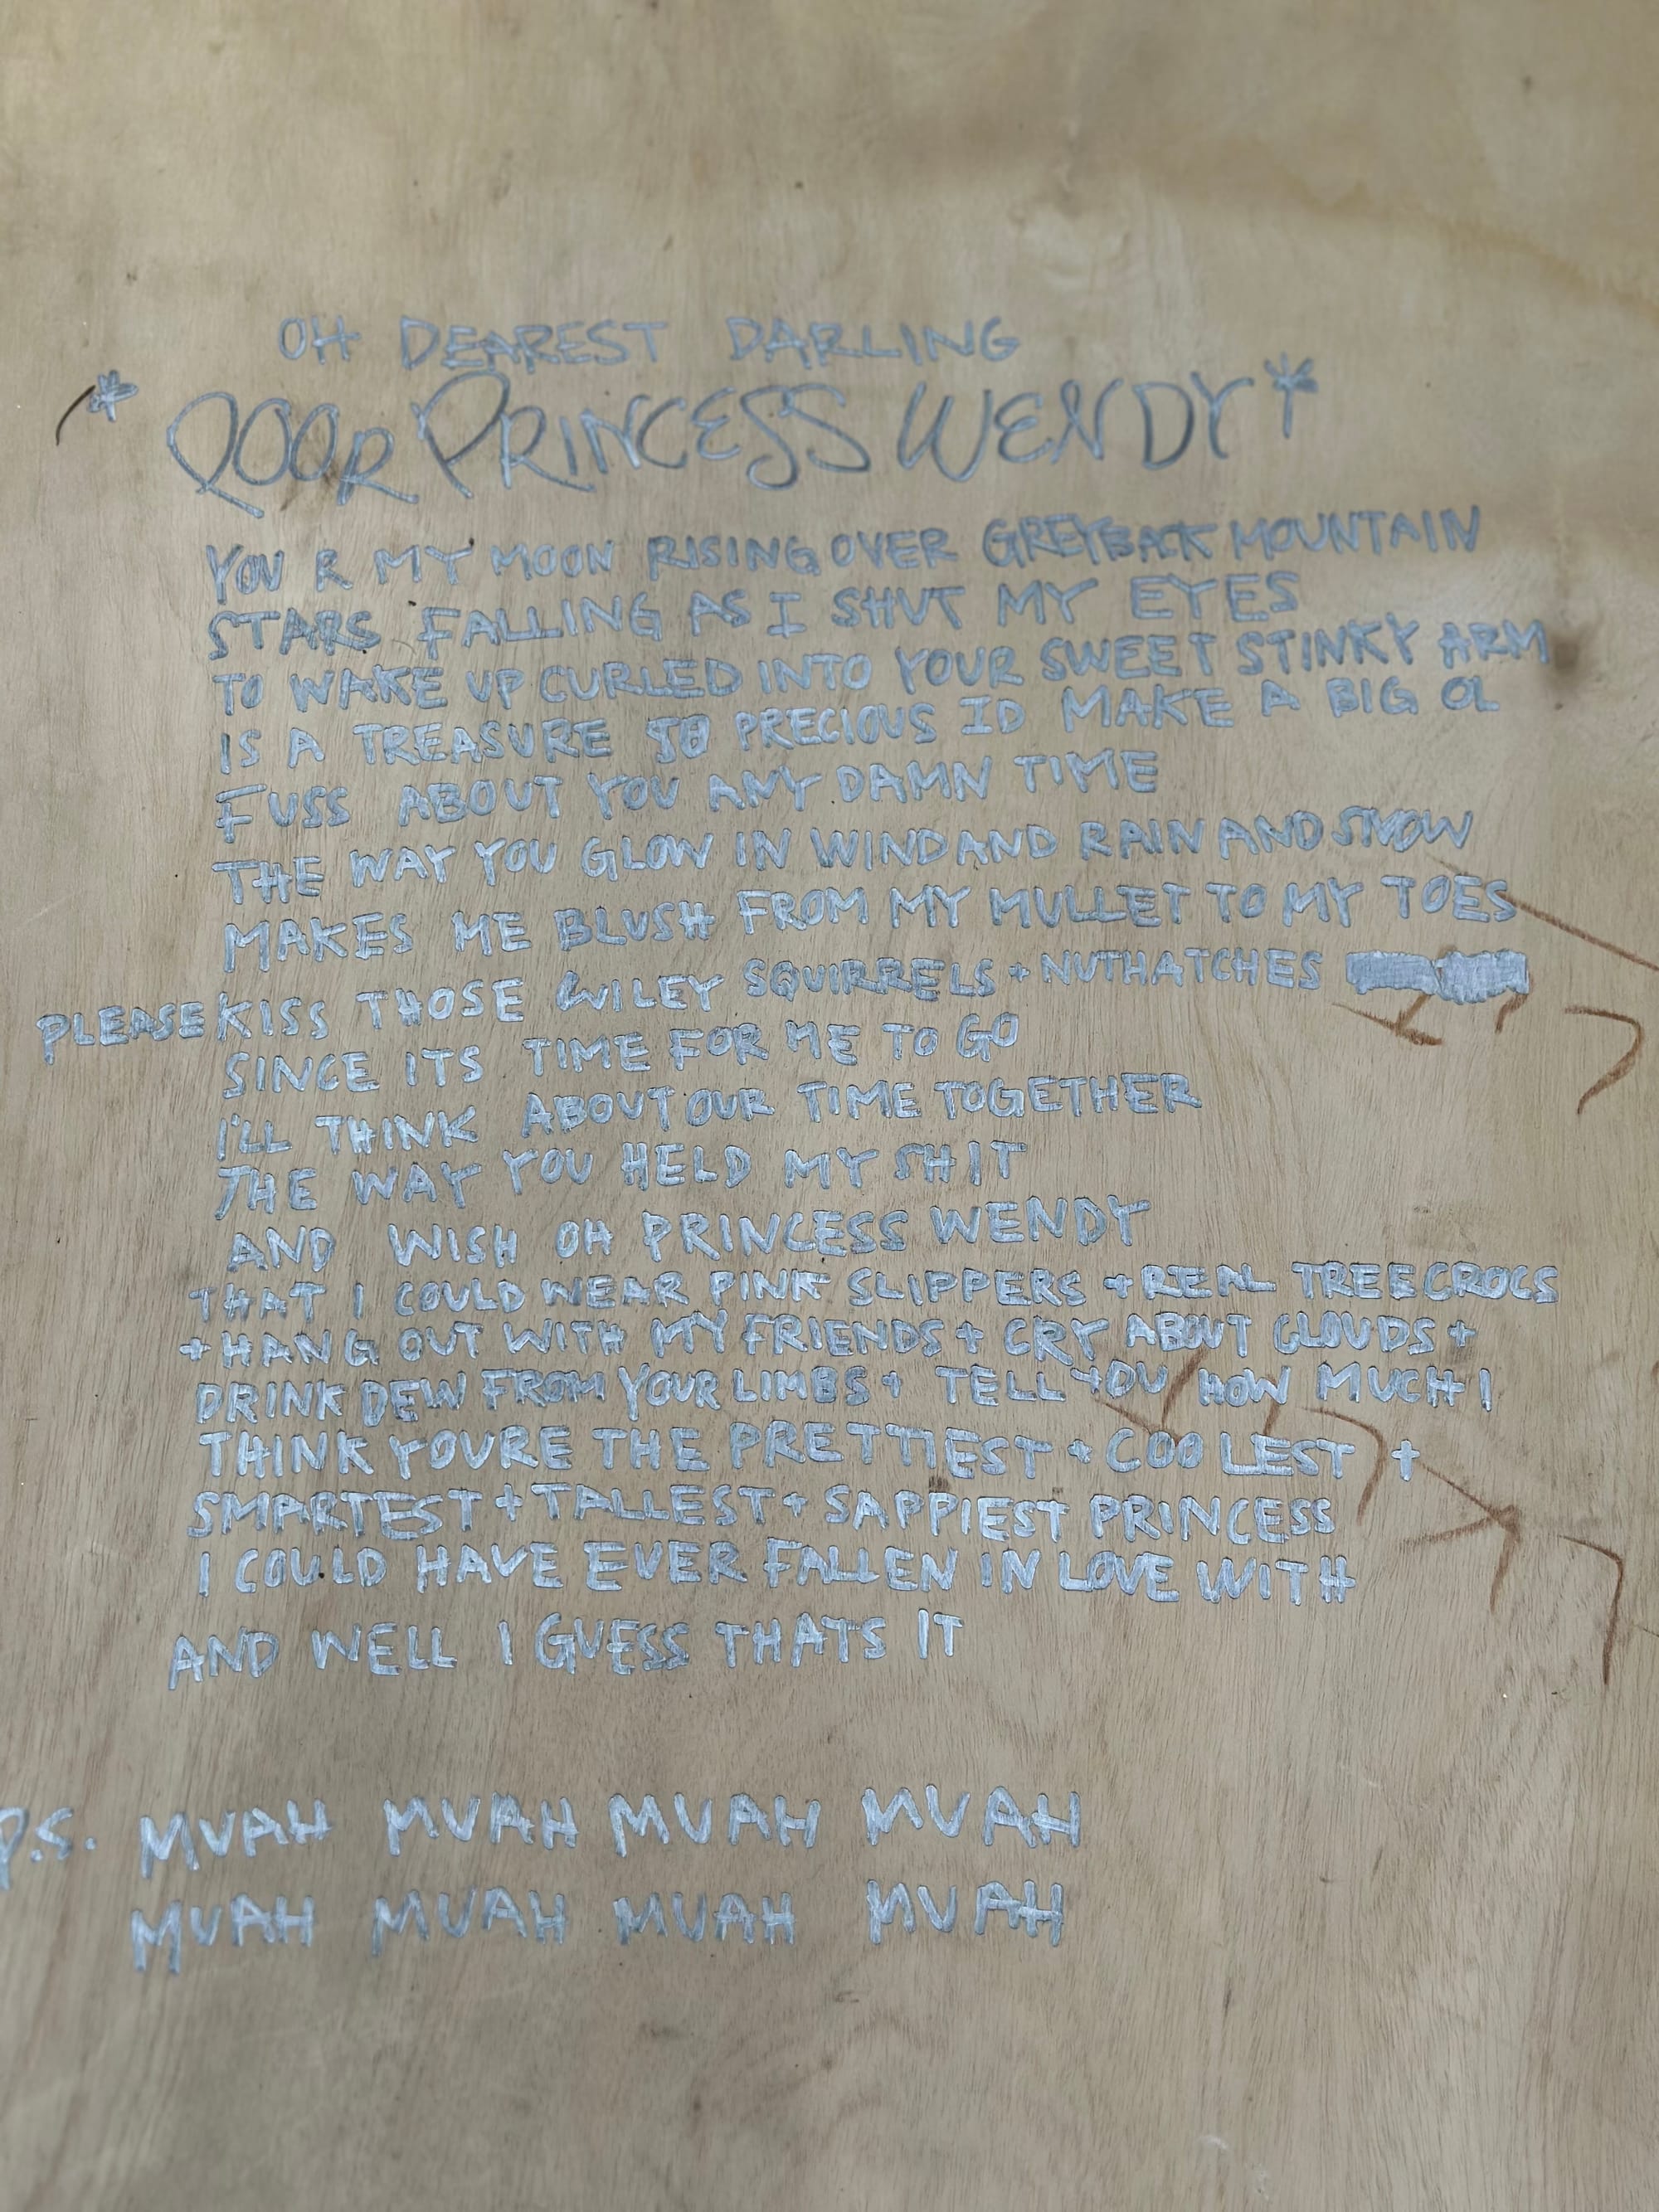 OH DEAREST DARLING
*POOR PRINCESS WENDY*
YOU R MY MOON RISING OVER GREYBACK MOUNTAIN
STARS FALLING AS I SHUT MY EYES
TO WAKE UP CURLED INTO YOUR SWEET STINKY ARM
IS A TREASURE SO PRECIOUS ID MAKE A BIG OL
FUSS ABOUT YOU ANY DAMN TIME
THE WAY YOU GLOW IN WIND AND RAIN AND SNOW
MAKES ME BLUSH FROM MY MULLET TO MY TOES
PLEASE KISS THOSE WILEY SQUIRRELS + NUTHATCHES
SINCE ITS TIME FOR ME TO GO
I'LL THINK ABOUT OUR TIME TOGETHER
THE WAY YOU HELD MY SHIT
AND WISH OH PRINCESS WENDY
THAT I COULD WEAR PINK SLIPPERS + REAL TREE CROCS
+ HANG OUT WITH MY FRIENDS + CRY ABOUT CLOUDS +
DRINK DEW FROM YOUR LIMBS + TELL YOU HOW MUCH I
THINK YOURE THE PRETTIEST + COOLEST +
SMARTEST + TALLEST + SAPPIEST PRINCESS
I COULD HAVE EVER FALLEN IN LOVE WITH
AND WELL I GUESS THATS IT
P.S. MUAH MUAH MUAH MUAH
MUAH MUAH MUAH MUAH